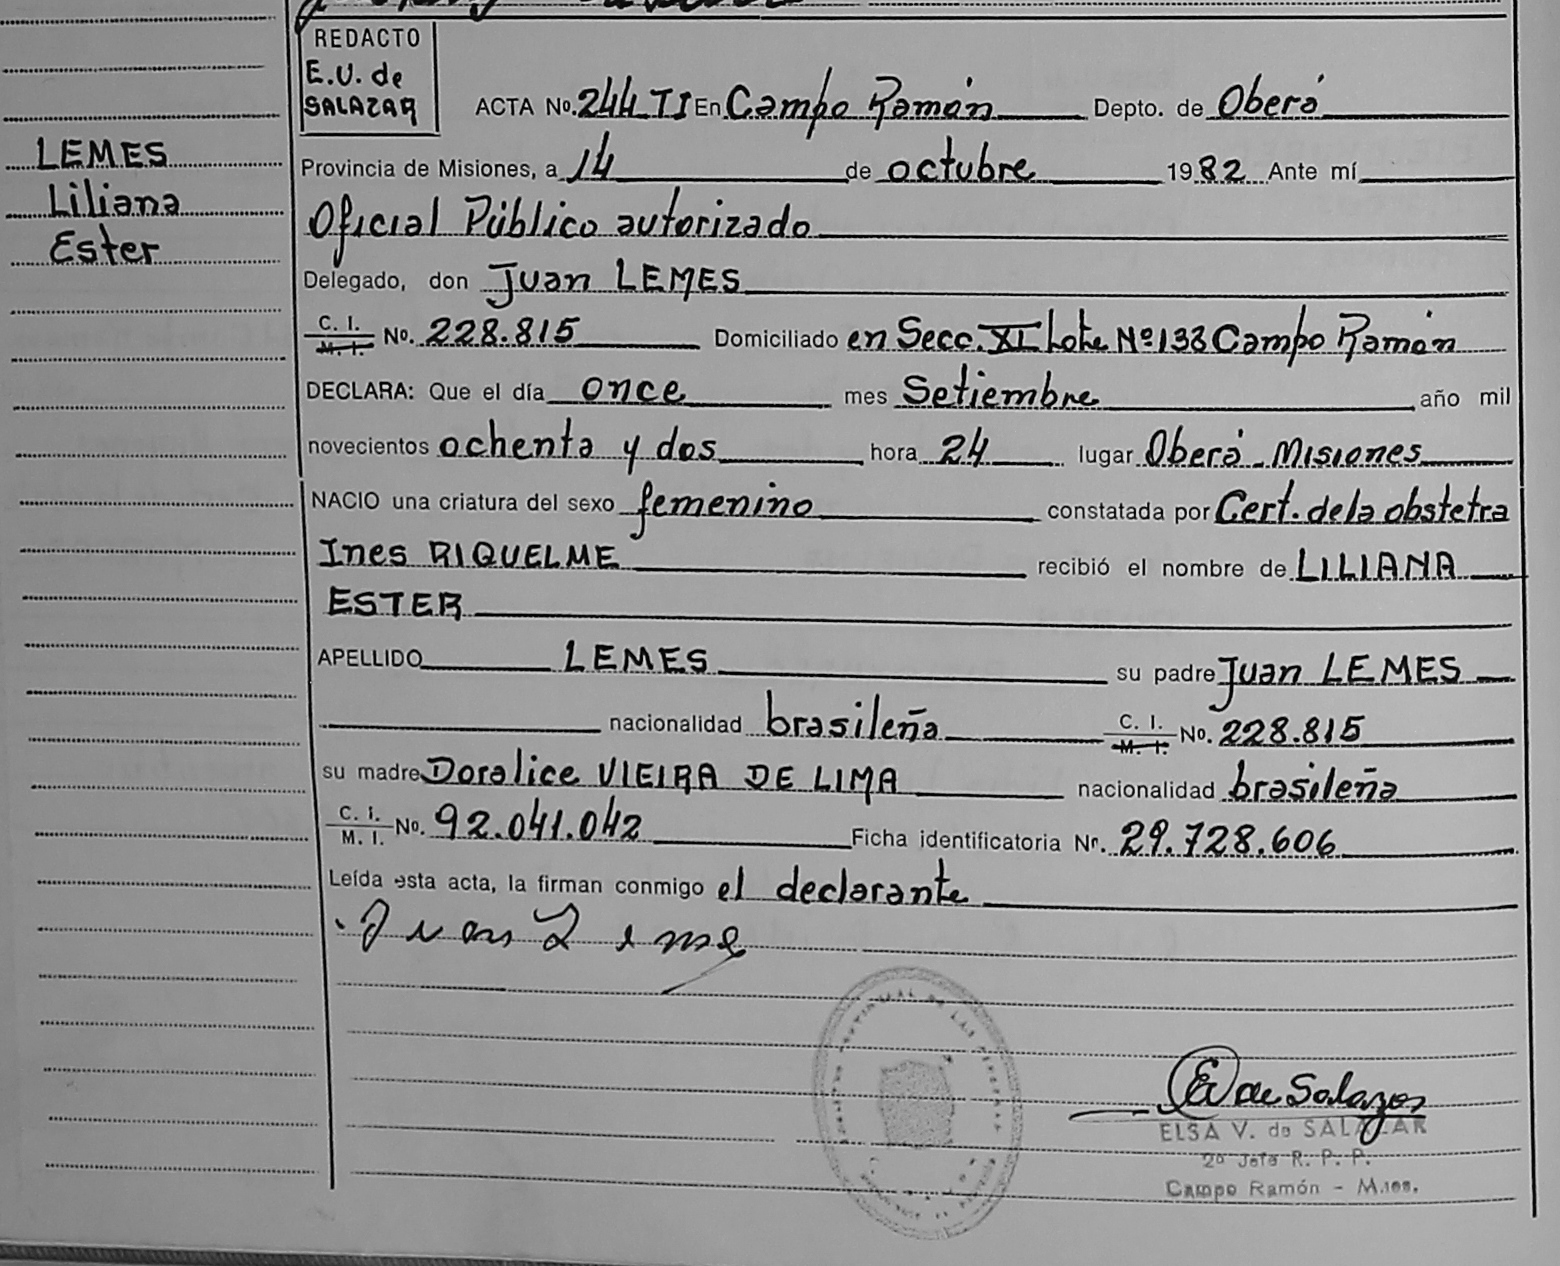 REDACTO
E.V. de
SALAZAR
ACTA No. 244 TI En Campo Ramón Depto. de Oberá
LEMES
Liliana
Ester
Provincia de Misiones, a 14 de octubre 1982 Ante mí
Oficial Público autorizado
Delegado, don Juan LEMES
C. I.
M. I. No. 228.815 Domiciliado en Secc. XI Lote Nº 138 Campo Ramón
DECLARA: Que el día once mes Setiembre año mil
novecientos ochenta y dos hora 24 lugar Oberá - Misiones
NACIO una criatura del sexo femenino constatada por Cert. de la obstetra
Ines RIQUELME recibió el nombre de LILIANA
ESTER
APELLIDO LEMES su padre Juan LEMES
nacionalidad brasileña C. I. M. I. No. 228.815
su madre Doralice VIEIRA DE LIMA nacionalidad brasileña
C. I. M. I. No. 92.041.042 Ficha identificatoria Nr. 29.728.606
Leída esta acta, la firman conmigo el declarante
Juan Leme
EV de Salazar
ELSA V. de SALAZAR
2º Jefe R. P. P.
Campo Ramón - Mnes.